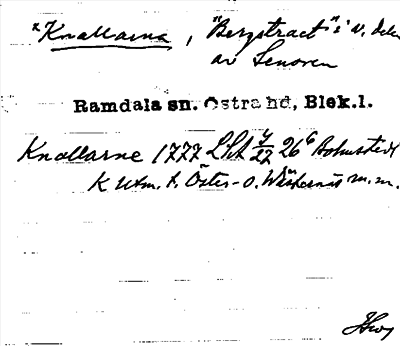 *Knallarna, "Bergstract" i v. delen
av Senoren
Ramdala sn. Östra hd, Blek.l.
Knallarne 1777 LSA 26⁶ Bohnstedt
K utm. t. Öster- o. Wästernäs m.m.